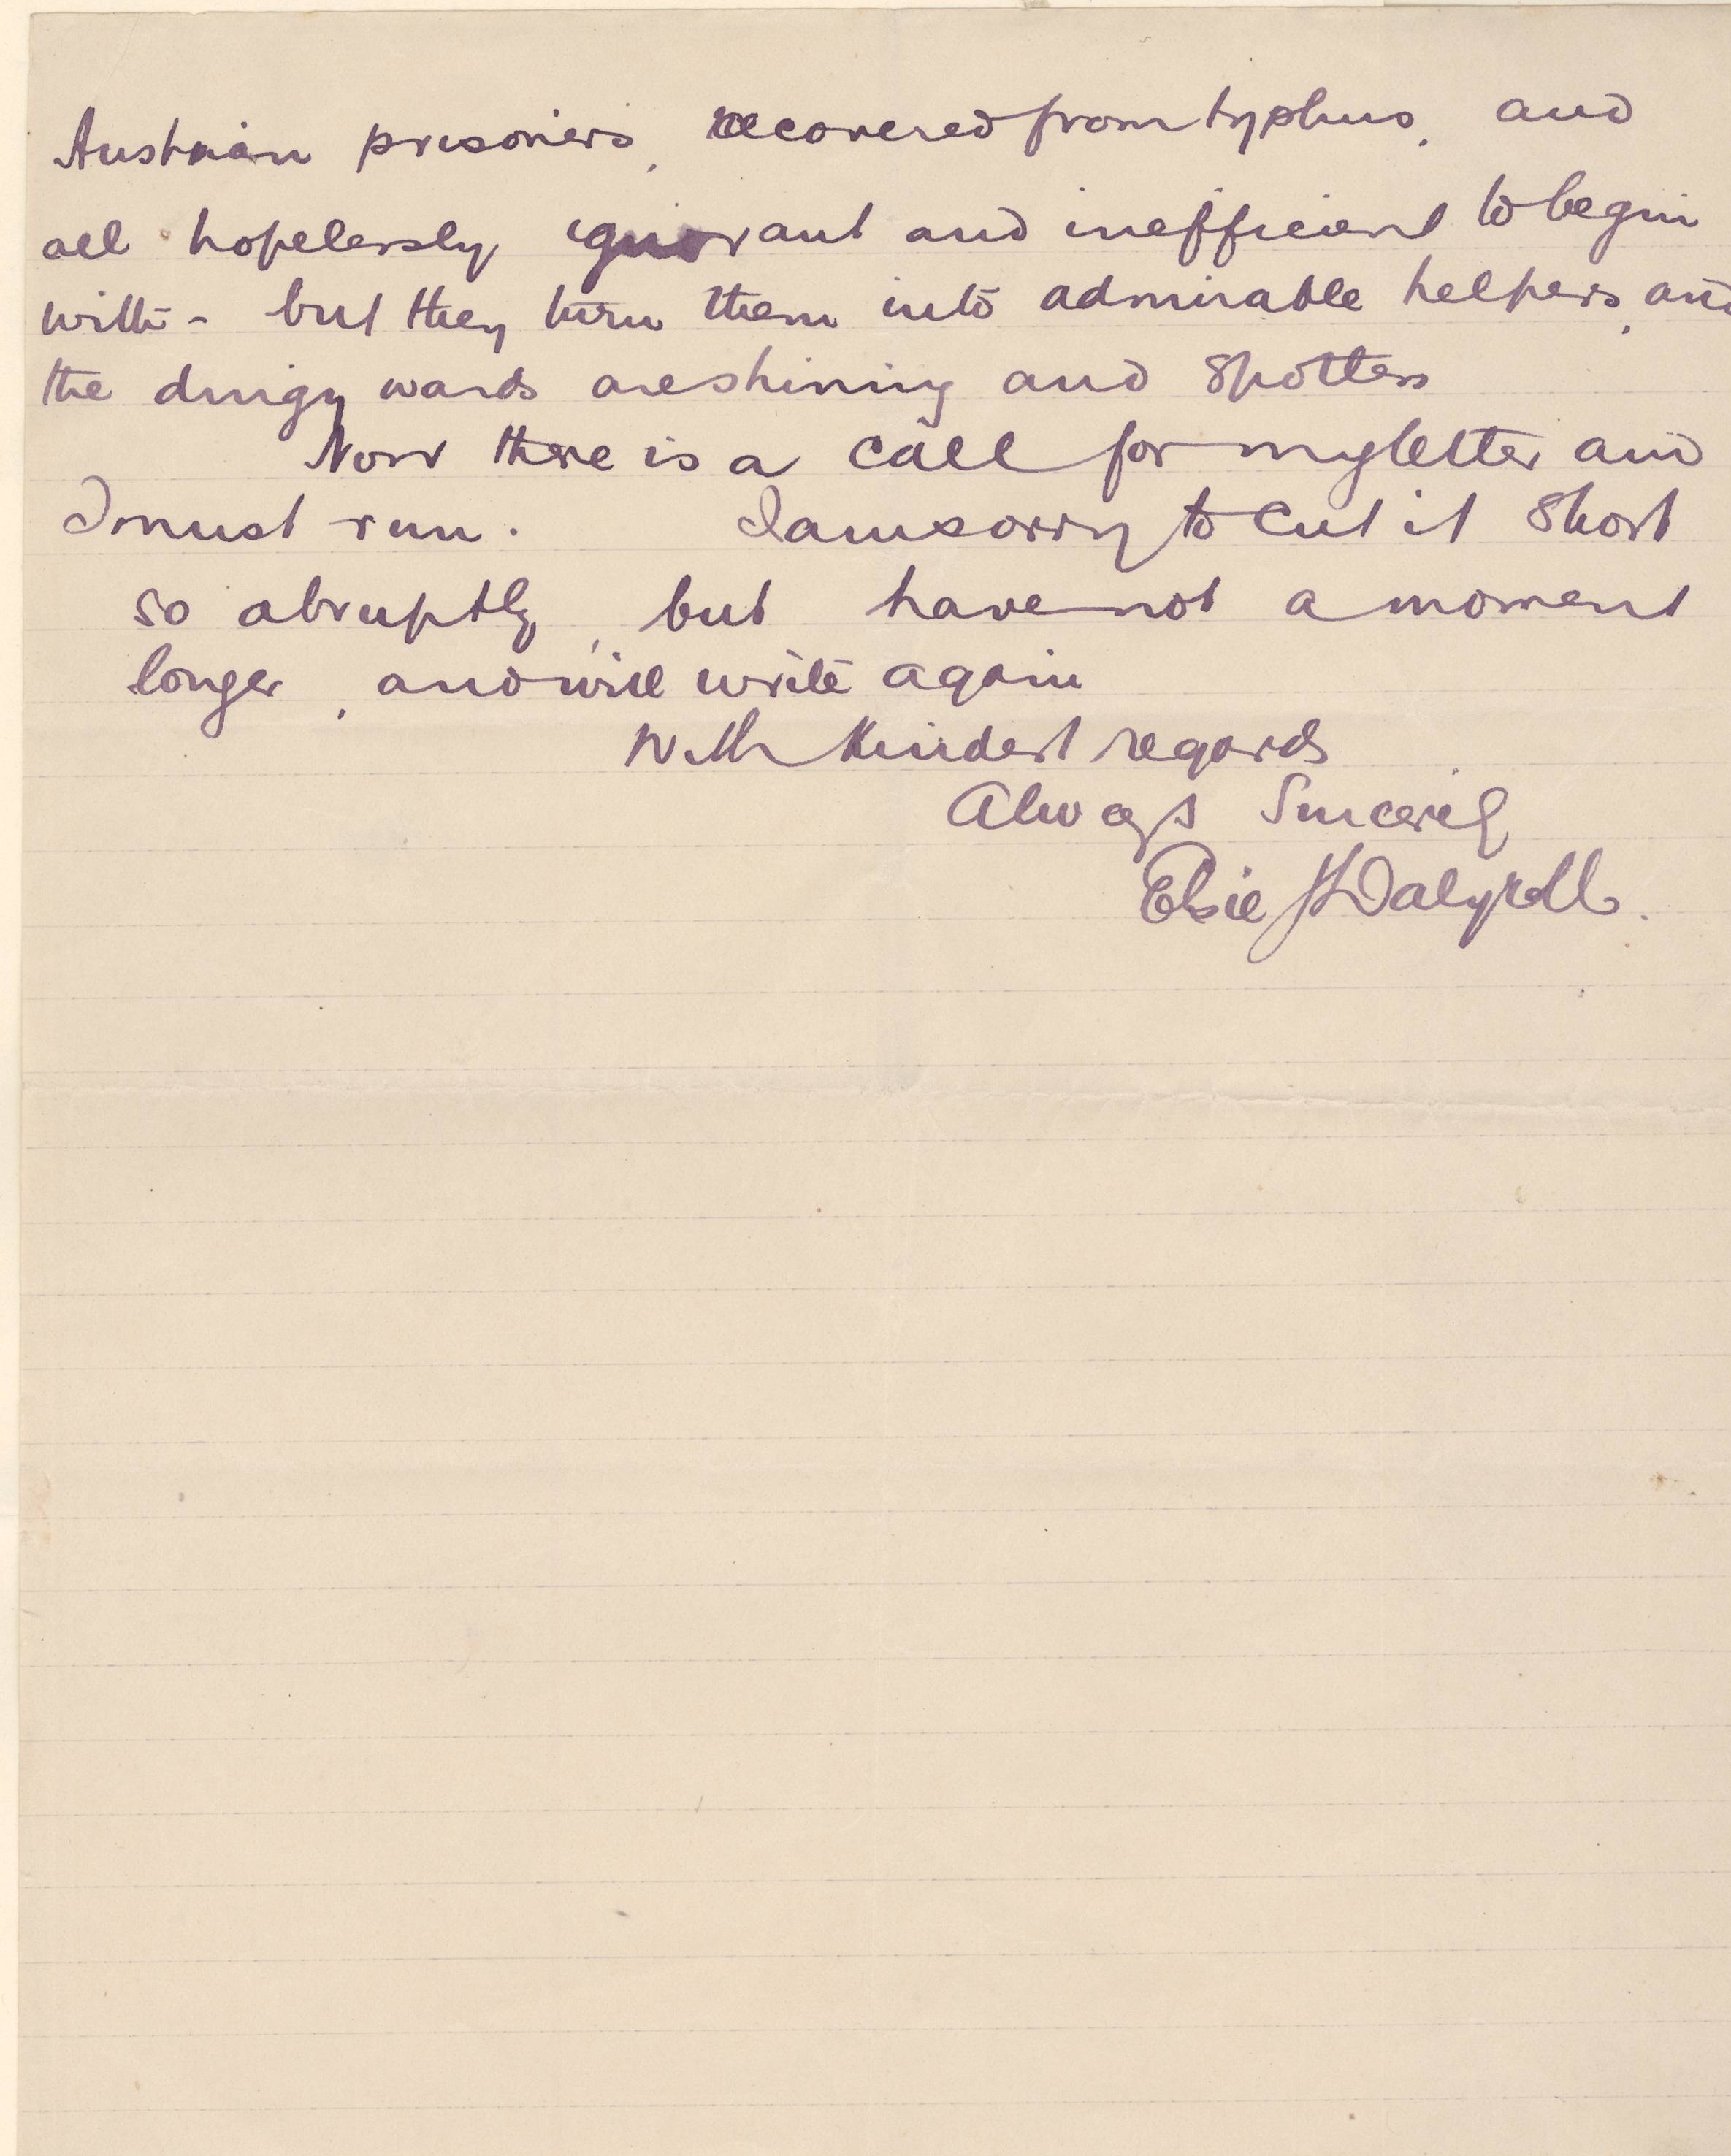 Austrian prisoners, recovered from typhus, and
all hopelessly ignorant and inefficient to begin
with - but they turn them into admirable helpers, and
the dingy wards are shining and spotless
Now there is a call for my letter and
I must run. I am sorry to cut it short
so abruptly, but have not a moment
longer, and will write again
With kindest regards
Always Sincerely
Elsie J Dalyell.